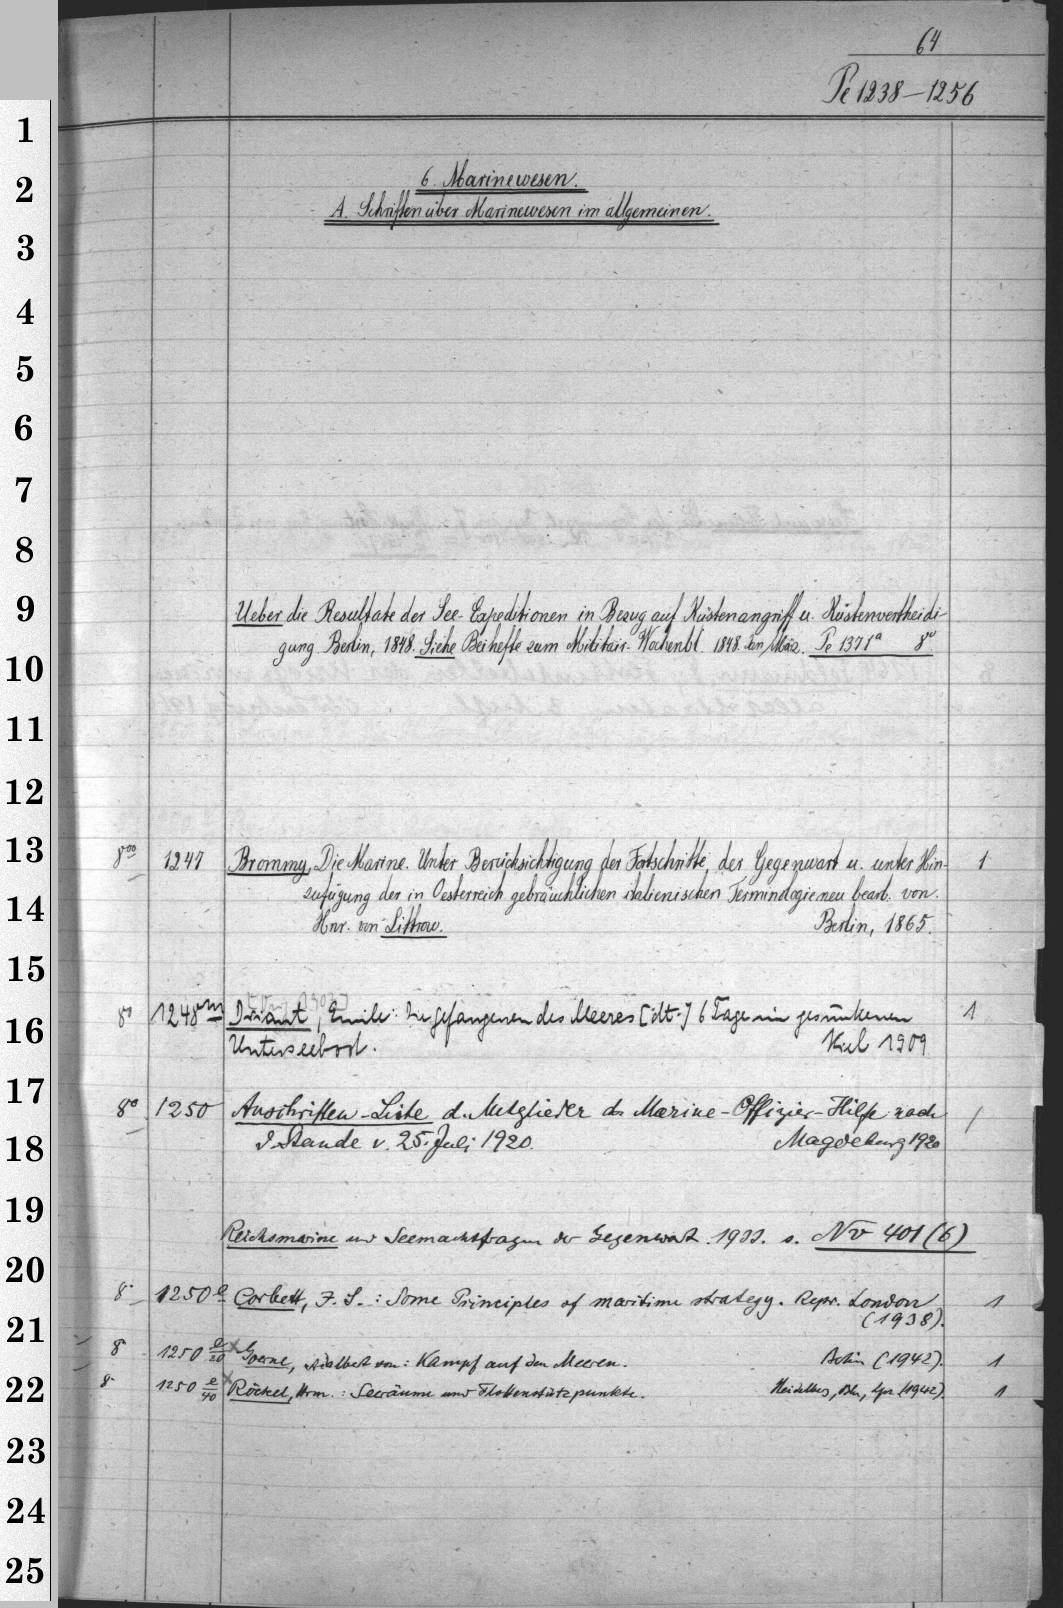 64
Pe 1238-1256
1
2
3
4
5
6
7
8
9
10
11
12
13
14
15
16
17
18
19
20
21
22
23
24
25
6. Marinewesen.
A. Schriften über Marinewesen im allgemeinen.
Ueber die Resultate der See-Expeditionen in Bezug auf Küstenangriff u. Küstenvertheidi-
gung Berlin, 1848. Siehe Beihefte zum Militair-Wochenbl. 1848. Jan/März. Pe 1371a 8vo
8vo 1247 Brommy, Die Marine. Unter Berücksichtigung der Fortschritte der Gegenwart u. unter Hin- 1
zufügung der in Oesterreich gebräuchlichen italienischen Terminologie neu bearb. von
Hnr. von Littrow. Berlin, 1865.
8o 1248m Driant, Emile: Die Gefangenen des Meeres [dt.] 6 Tage im gesunkenen 1
Unterseeboot. Kiel 1909
8o 1250 Anschriften-Liste d. Mitglieder ds Marine-Offizier-Hilfe nach 1
d. Stande v. 25. Juli 1920. Magdeburg 1920
Reichsmarine und Seemachtfragen der Gegenwart. 1933. s. Nv 401 (6)
8o 1250e Corbett, J. S.: Some Principles of maritime strategy. Repr. London 1
(1938).
8 1250 e/20 x Goerne, Adalbert von: Kampf auf den Meeren. Berlin (1942). 1
8o 1250 e/40 x Röckel, Herm.: Seeräume und Flottenstützpunkte. Heidelberg, Bln, Lpz (1942). 1